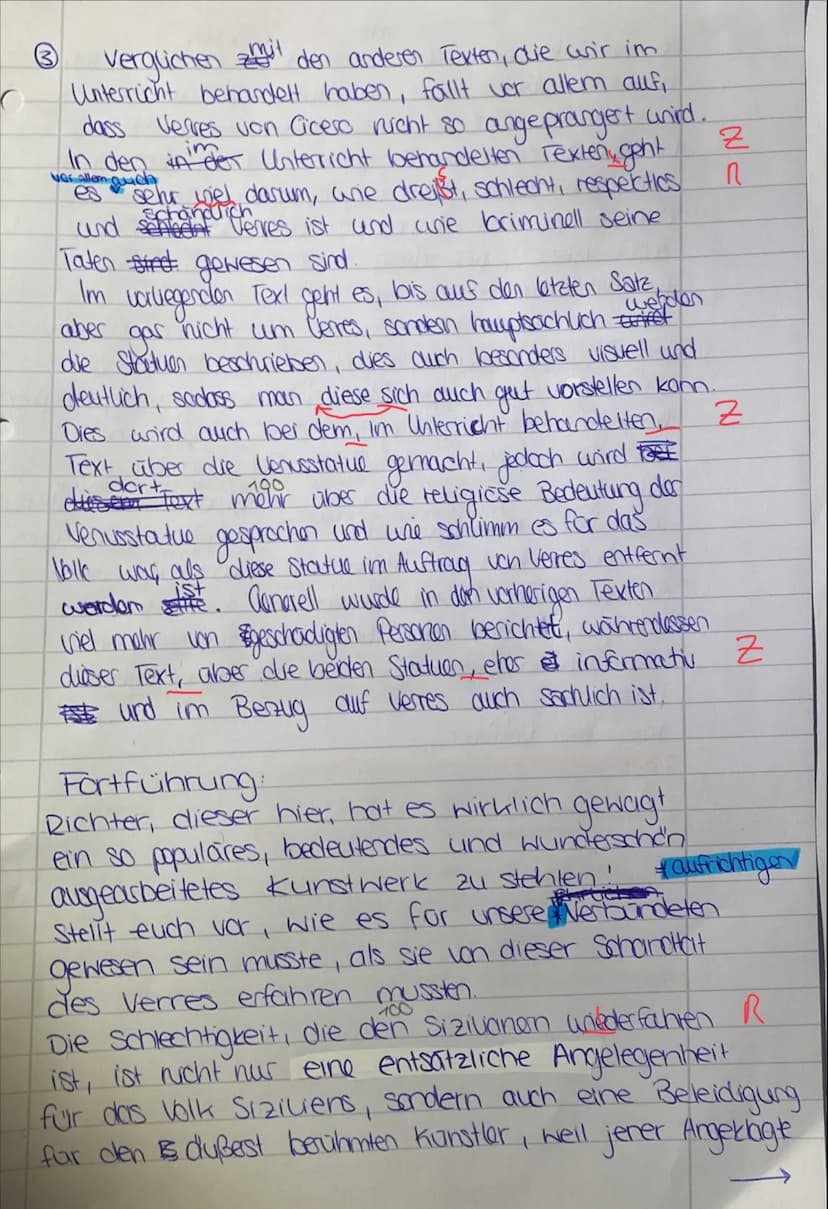 ③ Verglichen mit den anderen Texten, die wir im
Unterricht behandelt haben, fällt vor allem auf,
dass Verres von Cicero nicht so angeprangert wird.
In den im Unterricht behandelten Texten, geht Z
es vor allem auch sehr viel darum, wie dreißt, schlecht, respektlos R
und schändlich Verres ist und wie kriminell seine
Taten gewesen sind.
Im vorliegenden Text geht es, bis auf den letzten Satz,
aber gar nicht um Verres, sondern hauptsächlich werden
die Statuen beschrieben, dies auch besonders visuell und
deutlich, sodass man diese sich auch gut vorstellen kann.
Dies wird auch bei dem, im Unterricht behandelten, Z
Text über die Venusstatue gemacht, jedoch wird
dort mehr über die religiöse Bedeutung der
Venusstatue gesprochen und wie schlimm es für das
Volk war, als diese Statue im Auftrag von Verres entfernt
worden ist. Generell wurde in den vorherigen Texten
viel mehr von geschädigten Personen berichtet, währenddessen
dieser Text, über die beiden Statuen, eher informativ Z
und im Bezug auf Verres auch sachlich ist.
Fortführung:
Richter, dieser hier, hat es wirklich gewagt
ein so populäres, bedeutendes und wunderschön
ausgearbeitetes Kunstwerk zu stehlen! *aufrichtigen
Stellt euch vor, wie es für unsere *Verbündeten
gewesen sein musste, als sie von dieser Schandtat
des Verres erfahren mussten.
Die Schlechtigkeit, die den Sizilianern wiederfahren R
ist, ist nicht nur eine entsätzliche Angelegenheit
für das Volk Siziliens, sondern auch eine Beleidigung
für den äußest berühmten Künstler, weil jener Angeklagte
→